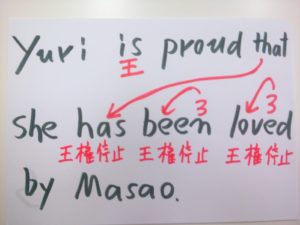 Yuri is proud that
王
3 3
she has been loved
王権停止 王権停止 王権停止
by Masao.